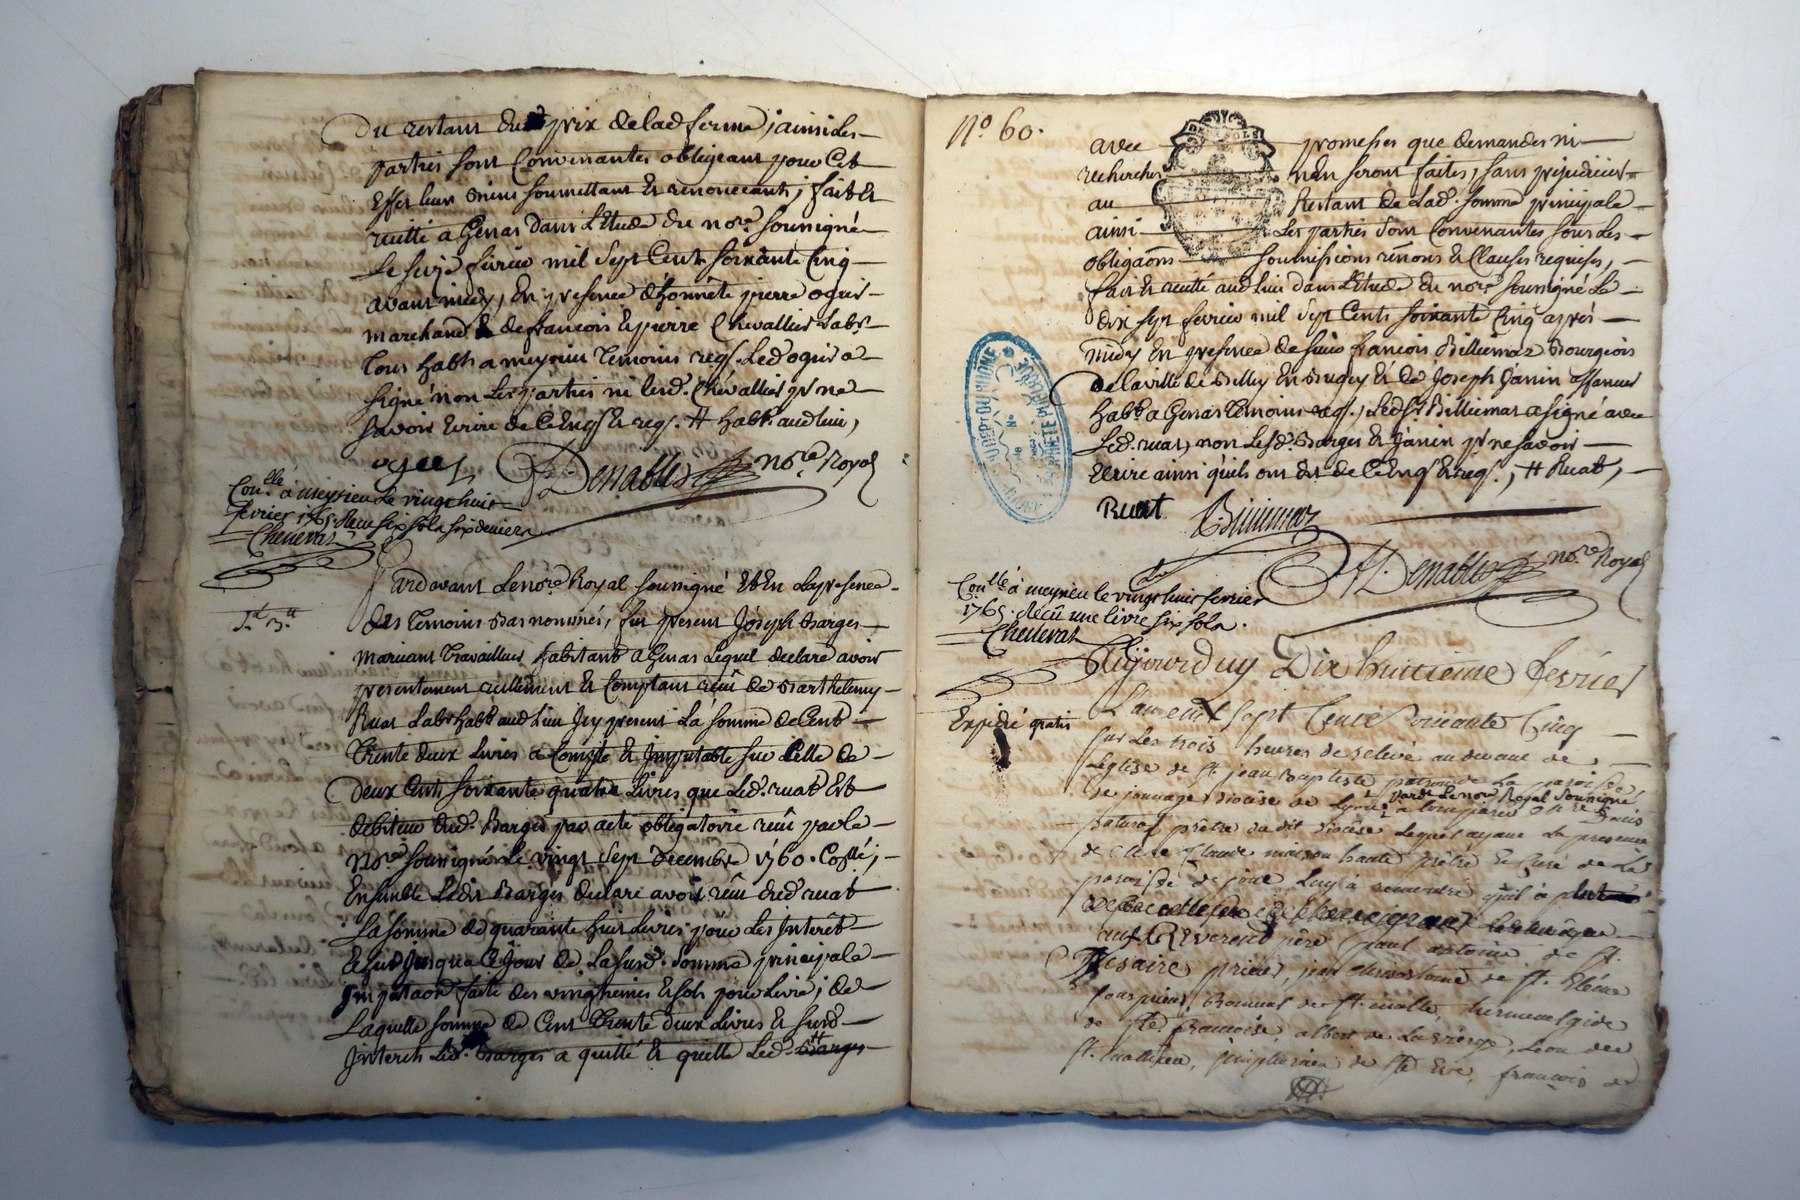 Du restant du prix de lad ferme, ainsi les
parties sont Convenantes obligeant pour Cet
Effet leurs biens soumettant et renonceant; fait et
recitté a Genas dans L'Etude du nore. soussigné
Le seize fevrier mil sept Cent soixante Cinq
avant midy, En presence d'honnête pierre ogier
marchand & de francois et pierre Chevallier Labrs
tous habts a meyzin temoins reqs. Led ogier a
signé non Les parties ni lesd. Chevallier pr ne
savoir Ecrire de ce Enqs et reqs. # habt. aud lieu,
ogier Denablis nore. Royal
Conlle. à meyzieu le vingt huit
fevrier 1765. Recu six sols six deniers
Chenevas
Pardevant Le nore. Royal soussigné Et En La presence
des temoins bas nommés, fut present Joseph Barges
maruant travailleur habitant a Genas Lequel declare avoir
presentement reellement & Comptant reçû de Barthelemy
Ruat Labr habt aud Lieu Icy present La somme de Cent
trente deux Livres a Compte & Imputable sur Celle de
Deux Cents soixante quatre Livres que Led. ruat Est
debiteur dud. Barges par acte obligatoire reçû par le
nore soussigné Le vingt sept Decembre 1760. Collé;
Ensemble Ledit Barges declare avoir reçû dud ruat
La somme de quarante huit Livres pour Les Interêts
Echus Jusqu'a Ce Jour de La susd. somme principale
Imputaon faite des vingtiemes & sols pour Livre; de
Laquelle somme de Cent trente deux Livres & susd
Interets Led. Barges a quitté & quitte Led. Barges
No. 60.
DEUX SOLS
avec promesses que demandes ni
recherches n'en seront faites, sans prejudicier
au Restant de Lad. somme principale
ainsi Les parties sont Convenantes sous Les
obligaons soumissions renons & Clauses requises,
fait & recitté aud Lieu dans L'Etude du nore soussigné Le
dix sept fevrier mil sept Cents soixante Cinq après
midy En presence de sieur francois Billiemaz Bourgeois
de la ville de Belley En Bugey & de Joseph Janin affaneur
habt. a Genas temoins reqs., Led sr Billiemaz a signé avec
Led. ruat, non Lesd. Barges & Janin pr ne savoir
Ecrire ainsi qu'ils ont dit de ce Enqs & reqs., # Ruat,
Ruat Billiemaz
Denablis nore Royal
Conlle à meyzieu le vingt huit fevrier
1765. Reçû une livre six sols.
Chenevas
Aujourduy Dix huitieme fevrier
L'an mil sept Cent soixante Cinq
Expédié gratis
sur Les trois heures de relevé au devant de
Leglise de st jean Baptiste patron de La paroisse
de jonnage diocèse de Lyon, pardt Le nore Royal soussigné
a comparu
prêtre du dit diocèse Lequel ayant La presence
de Claude maison haute prêtre & Curé de La
paroisse de Luy a remontré qu'il a
Reverend père paul antoine de st.
Cesaire prieur, jean de ste. Hélène
sousprieur, Romual de st. malte, hermenegide
de ste françoise, albert de La vierge, Leon de
st. mathieu, de ste Eve, françois de